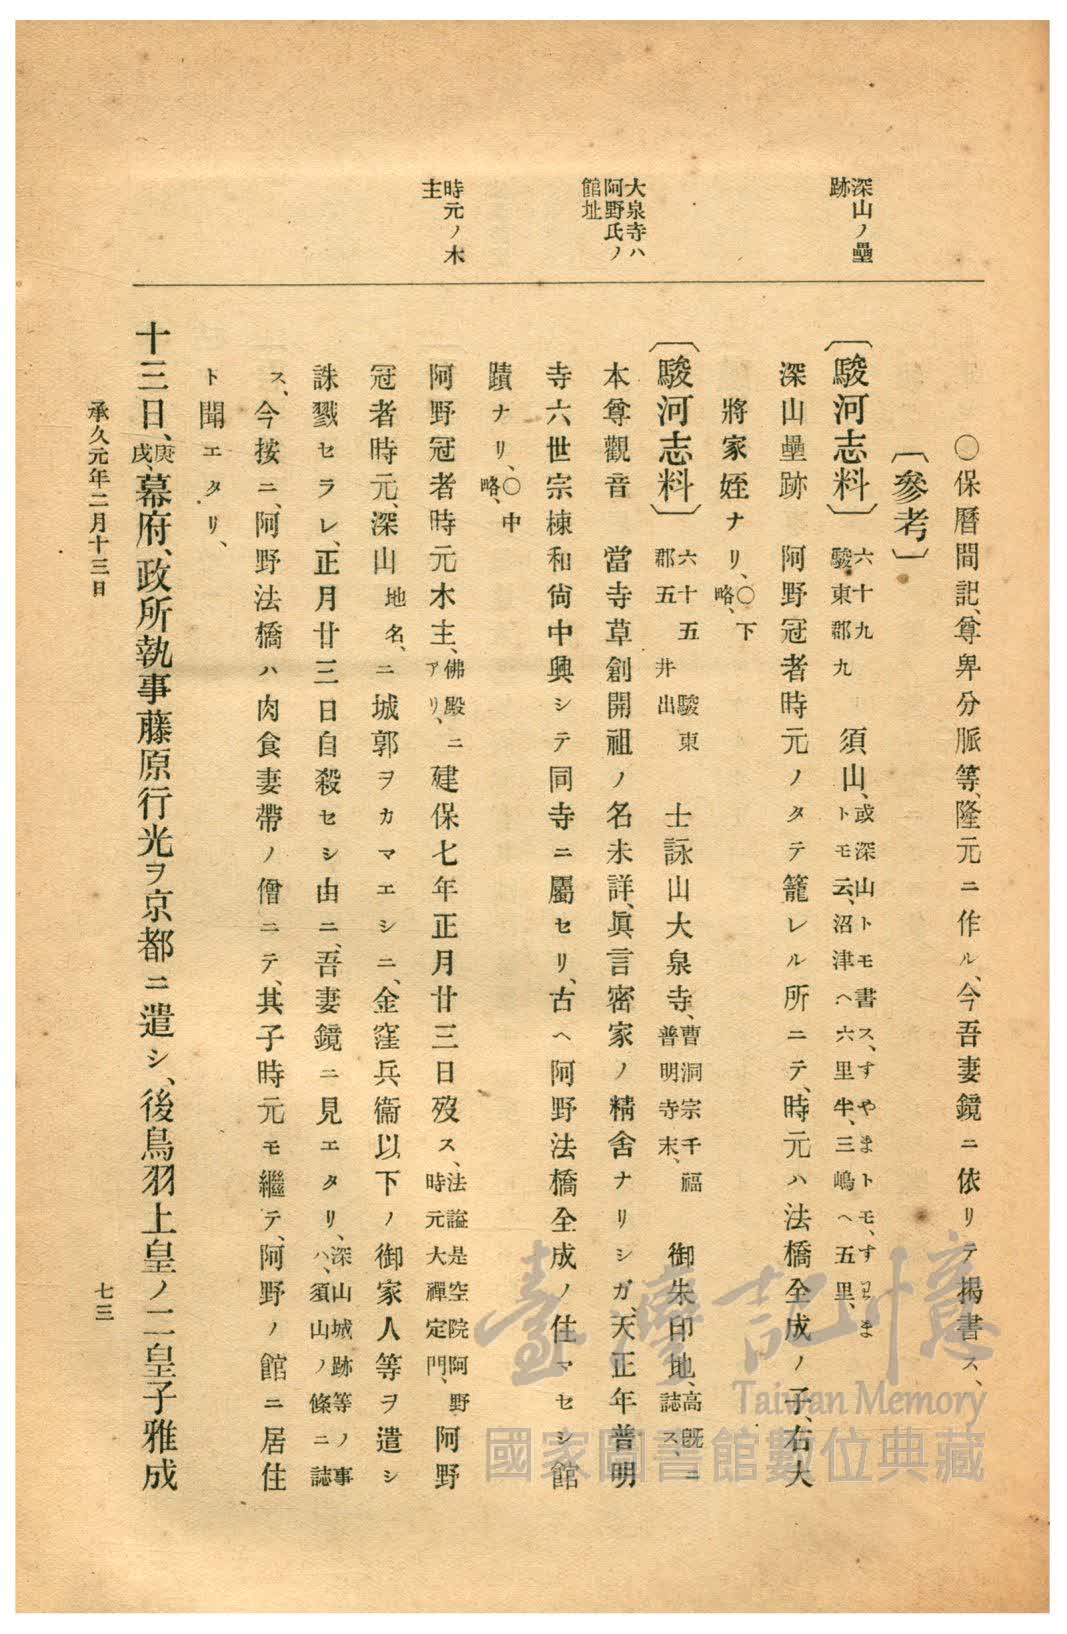 深山ノ壘
跡
大泉寺ハ
阿野氏ノ
館址
時元ノ木
主
〇保曆間記、尊卑分脈等、隆元ニ作ル、今吾妻鏡ニ依リテ揭書ス、
〔參考〕
〔駿河志料〕六十九駿東郡九 須山、或深山トモ書ス、すやまトモ、すこまトモ云、沼津ヘ六里半、三嶋ヘ五里、
深山壘跡 阿野冠者時元ノタテ籠レル所ニテ、時元ハ法橋全成ノ子、右大
將家姪ナリ、〇下略、
〔駿河志料〕六十五駿東郡五井出 士詠山大泉寺、曹洞宗千福普明寺末、 御朱印地、高既ニ誌ス、
本尊觀音 當寺草創開祖ノ名未詳、眞言密家ノ精舍ナリシガ、天正年普明
寺六世宗棟和尙中興シテ同寺ニ屬セリ、古ヘ阿野法橋全成ノ住マセシ館
蹟ナリ、〇中略、
阿野冠者時元木主、佛殿ニアリ、建保七年正月廿三日歿ス、法謚是空院阿野時元大禪定門、阿野
冠者時元、深山地名、ニ城郭ヲカマエシニ、金窪兵衞以下ノ御家人等ヲ遣シ
誅戮セラレ、正月廿三日自殺セシ由ニ、吾妻鏡ニ見エタリ、深山城跡等ノ事ハ、須山ノ條ニ誌
ス、今按ニ、阿野法橋ハ肉食妻帶ノ僧ニテ、其子時元モ繼テ、阿野ノ館ニ居住
ト聞エタリ、
十三日、庚戌、幕府、政所執事藤原行光ヲ京都ニ遣シ、後鳥羽上皇ノ二皇子雅成
承久元年二月十三日
七三
臺灣記憶
Taiwan Memory
國家圖書館數位典藏